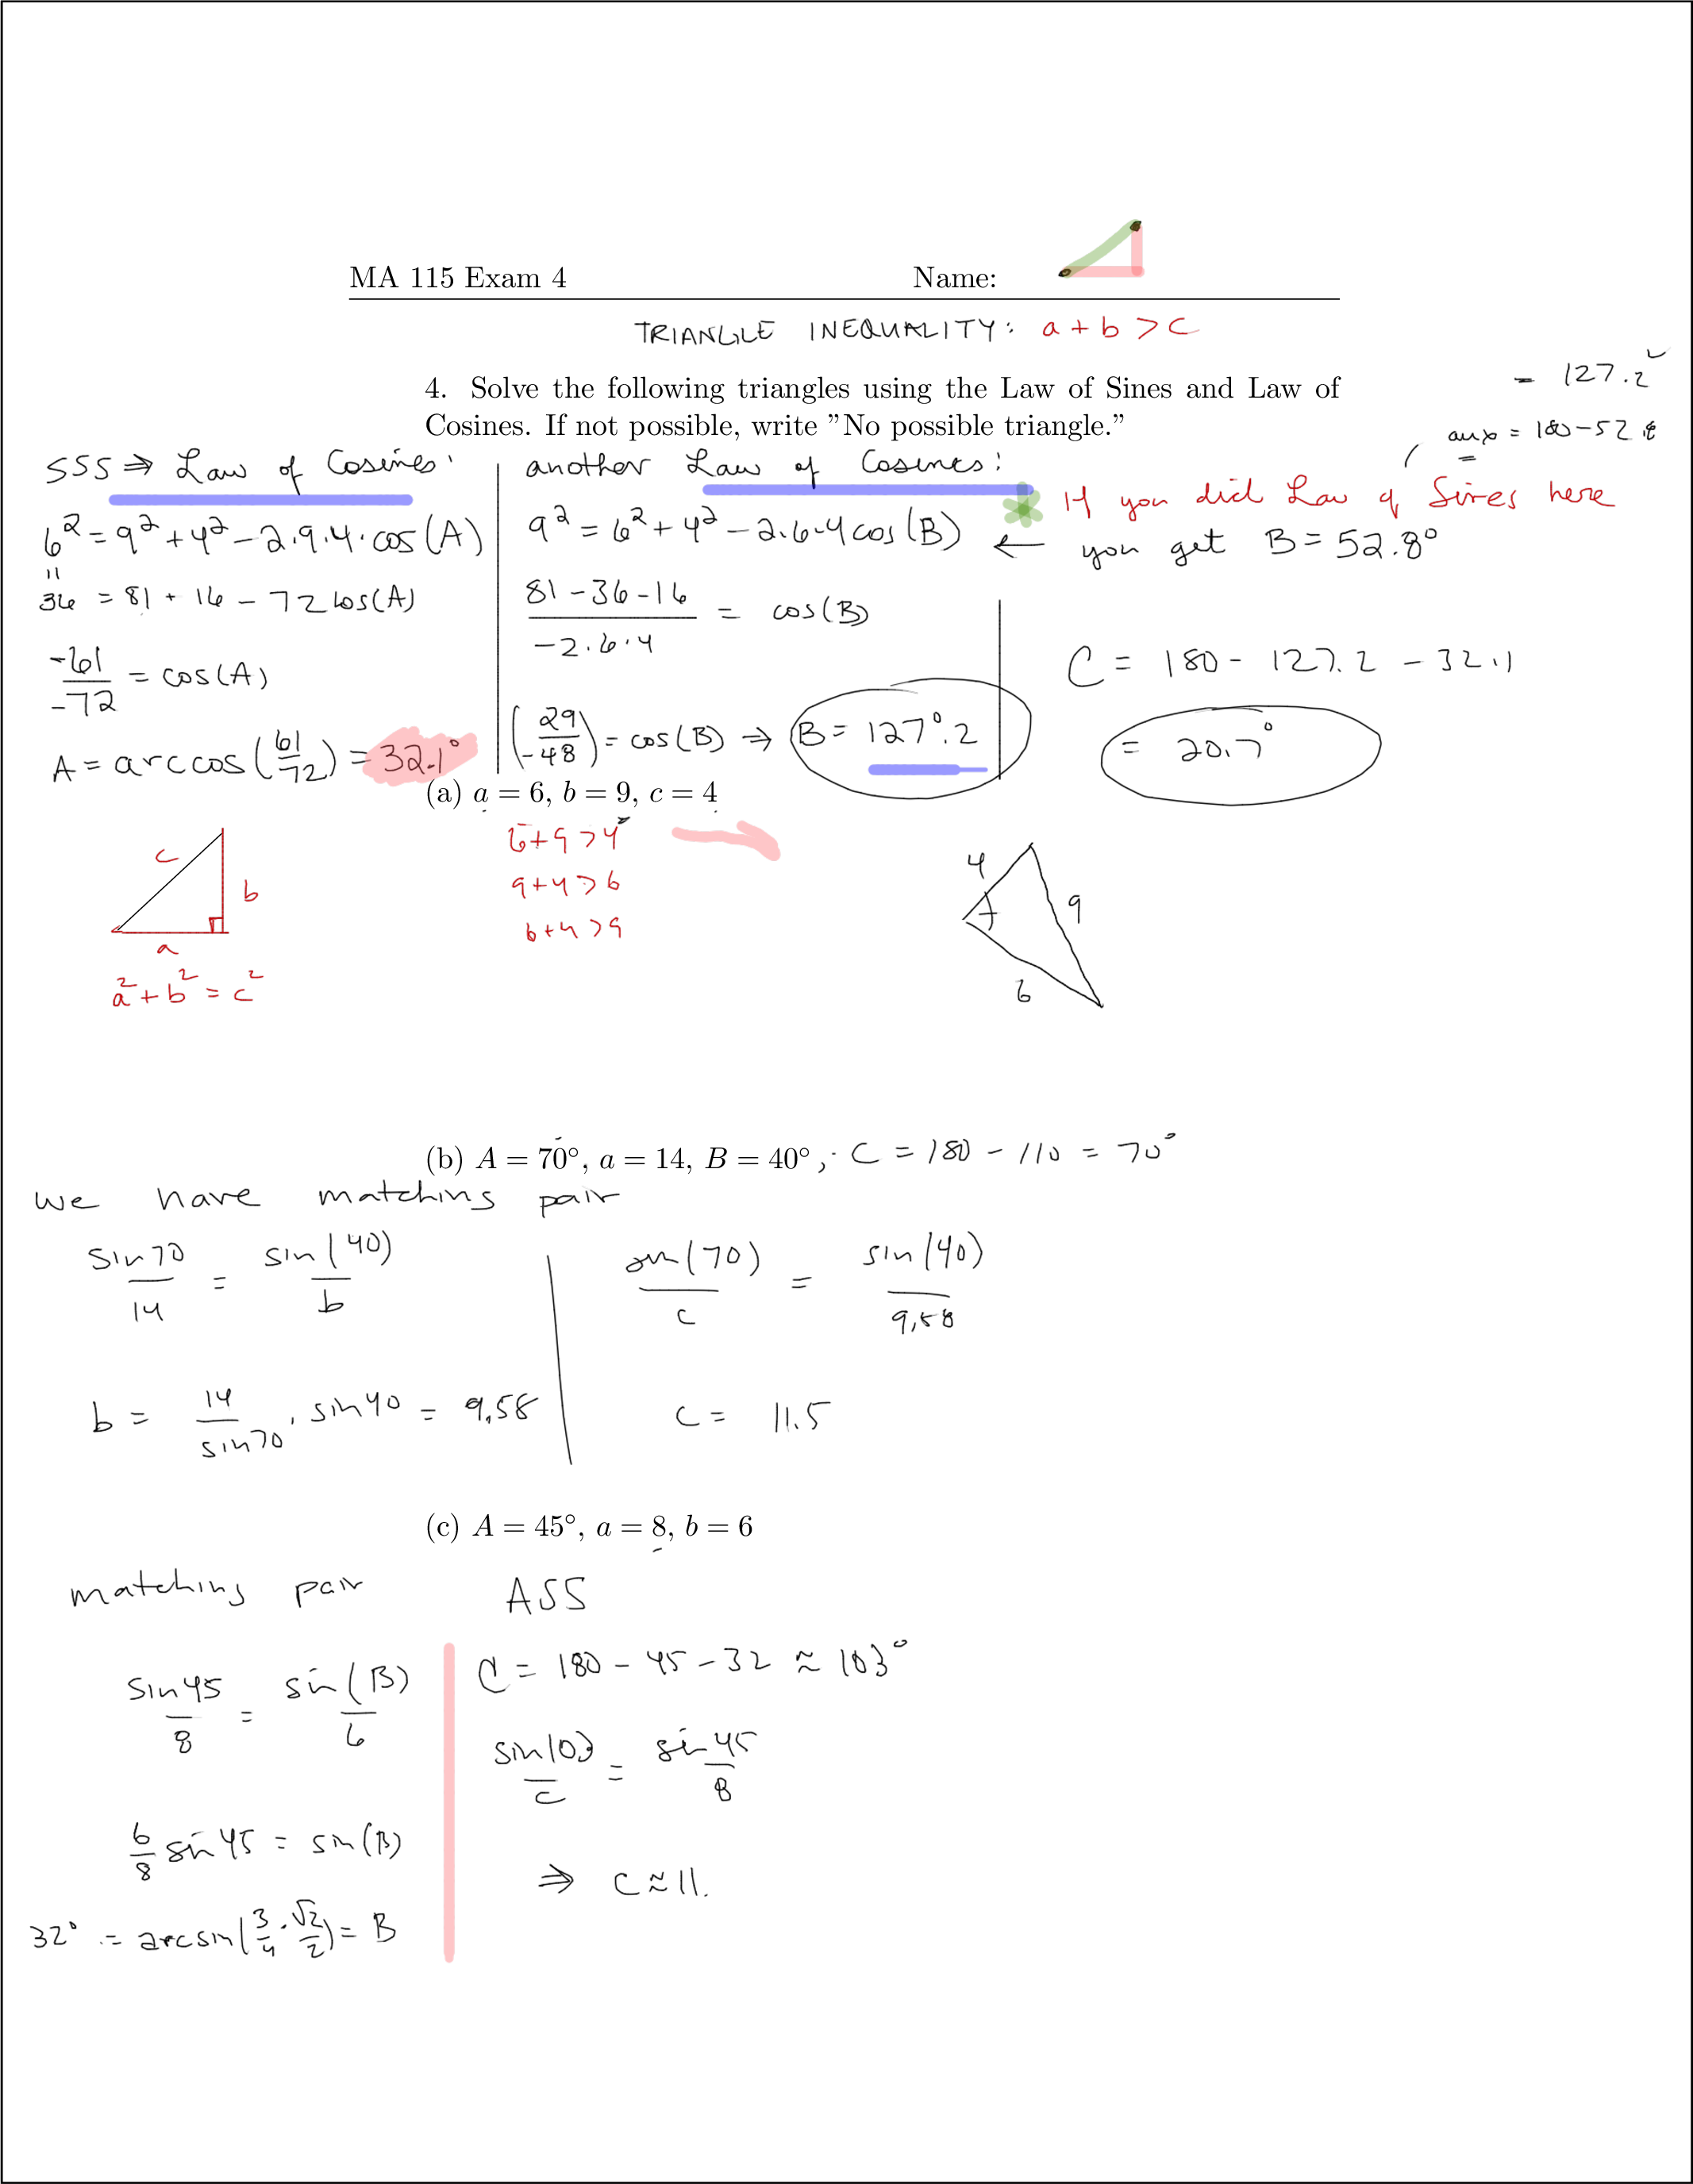 MA 115 Exam 4 Name:
TRIANGLE INEQUALITY: a + b > c
4. Solve the following triangles using the Law of Sines and Law of
Cosines. If not possible, write ”No possible triangle.”
= 127.2°
aux = 180-52.8
SSS ⇒ Law of Cosines:
6² = 9² + 4² - 2·9·4·cos(A)
36 = 81 + 16 - 72 cos(A)
-61/-72 = cos(A)
A = arccos(61/72) = 32.1°
another Law of Cosines:
9² = 6² + 4² - 2·6·4 cos(B)
81-36-16/-2·6·4 = cos(B)
(29/-48) = cos(B) ⇒ B = 127°.2
* If you did Law of Sines here
← you get B = 52.8°
C = 180 - 127.2 - 32.1
= 20.7°
(a) a = 6, b = 9, c = 4
c
b
a
a² + b² = c²
6+9 > 4
9+4 > 6
6+4 > 9
4
9
6
(b) A = 70°, a = 14, B = 40°, C = 180 - 110 = 70°
we have matching pair
sin 70/14 = sin(40)/b
b = 14/sin70 · sin40 = 9.58
sin(70)/c = sin(40)/9.58
c = 11.5
(c) A = 45°, a = 8, b = 6
matching pair ASS
sin 45/8 = sin(B)/6
6/8 sin 45 = sin(B)
32° = arcsin(3/4 · √2/2) = B
C = 180 - 45 - 32 ≈ 103°
sin103/c = sin 45/8
⇒ c ≈ 11.